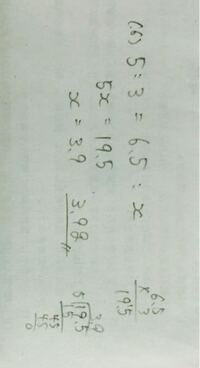 (6) 5 : 3 = 6.5 : x
5x = 19.5
x = 3.9 3.9g
6.5
x 3
19.5
3.9
5)19.5
15
45
45
0